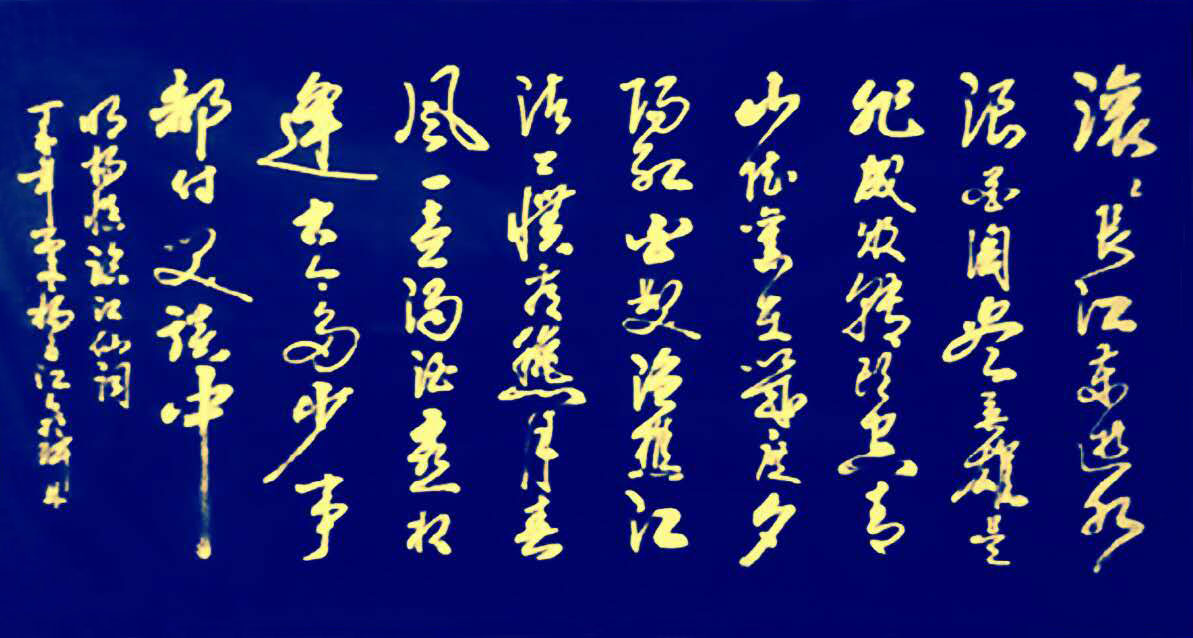 滚〻长江东逝水
浪花淘尽英雄是
非成败转头空青
山依舊在幾度夕
陽红白发渔樵江
渚上惯看秋月春
風一壶濁酒喜相
逢古今多少事
都付笑談中
明楊慎臨江仙詞
丁 年 江